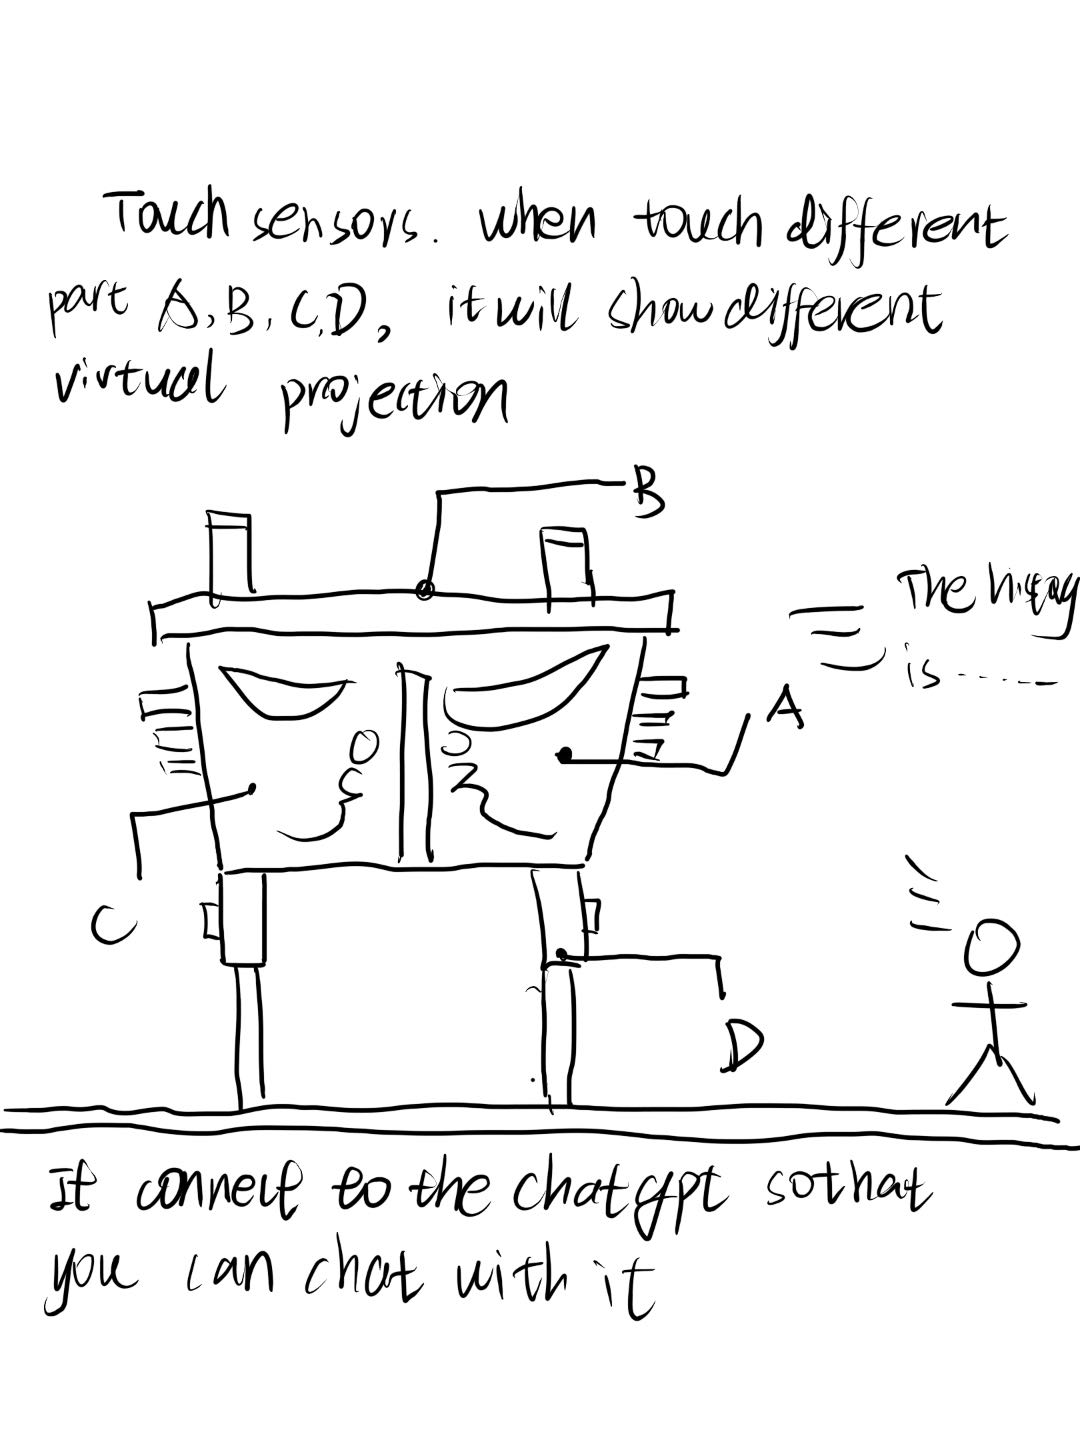 Touch sensors. when touch different
part A, B, C, D, it will show different
virtual projection
B
The history
is ------
A
C
D
It connect to the chatgpt so that
you can chat with it